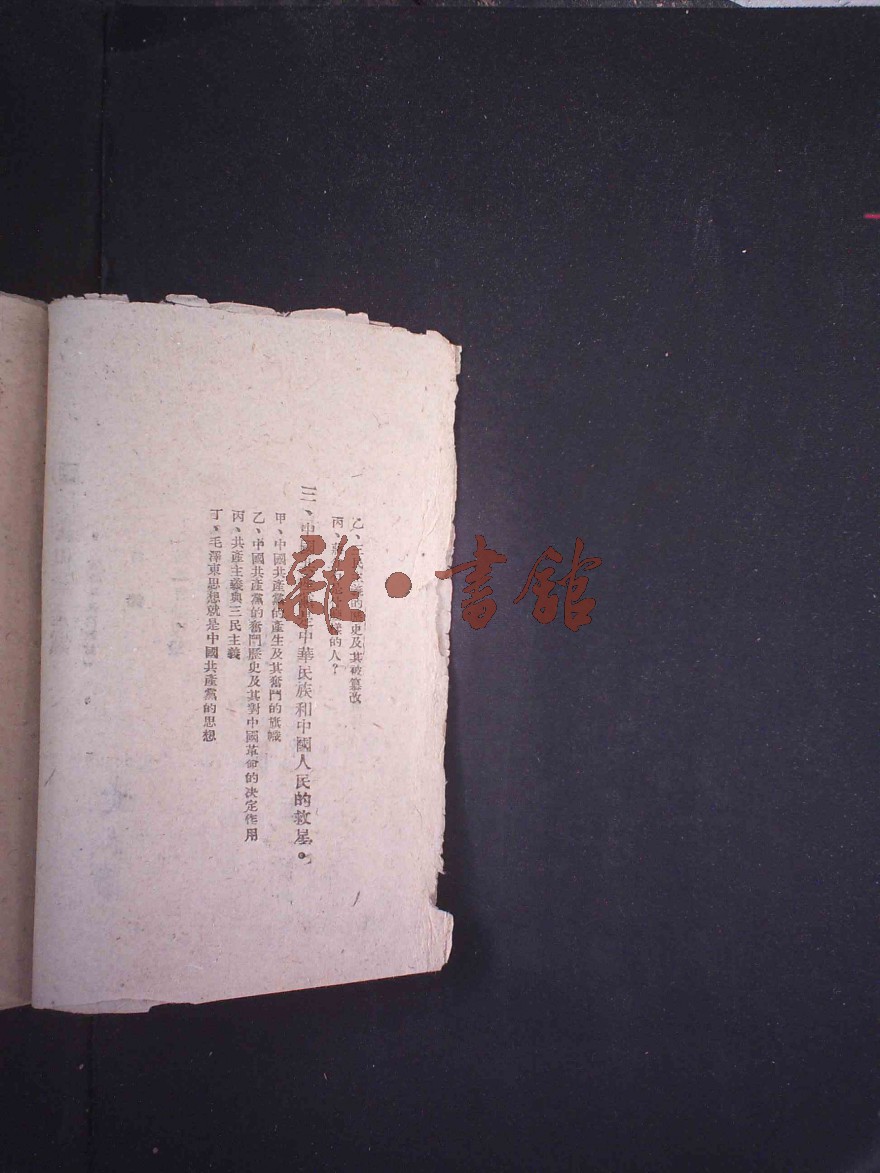 乙、三民主義的歷史及其被篡改
丙、蔣的人?
三、中國中華民族和中國人民的救星。
甲、中國共產黨的產生及其奮鬥的旗幟
乙、中國共產黨的奮鬥歷史及其對中國革命的決定作用
丙、共產主義與三民主義
丁、毛澤東思想就是中國共產黨的思想
雜·書館